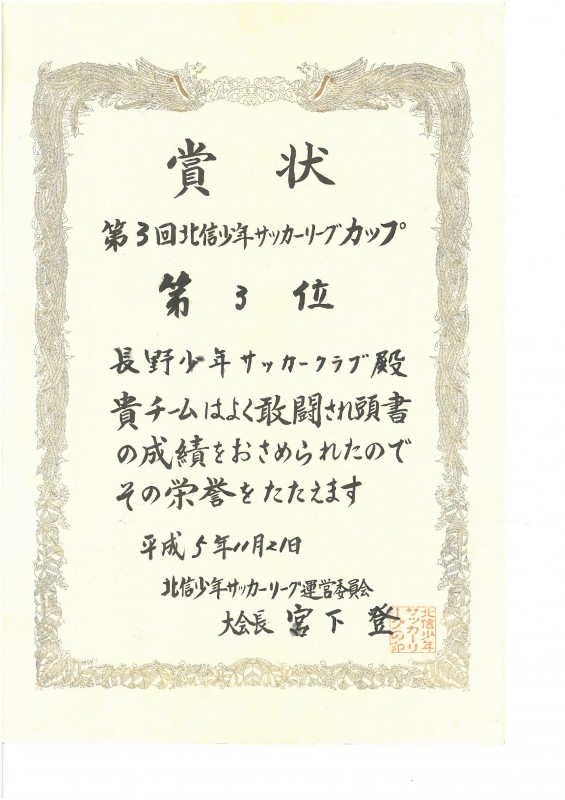 賞状
第3回北信少年サッカーリーグカップ
第3位
長野少年サッカークラブ殿
貴チームはよく敢闘され頭書
の成績をおさめられたので
その栄誉をたたえます
平成5年11月21日
北信少年サッカーリーグ運営委員会
大会長 宮下登
北信少年
サッカーリ
ーグの印